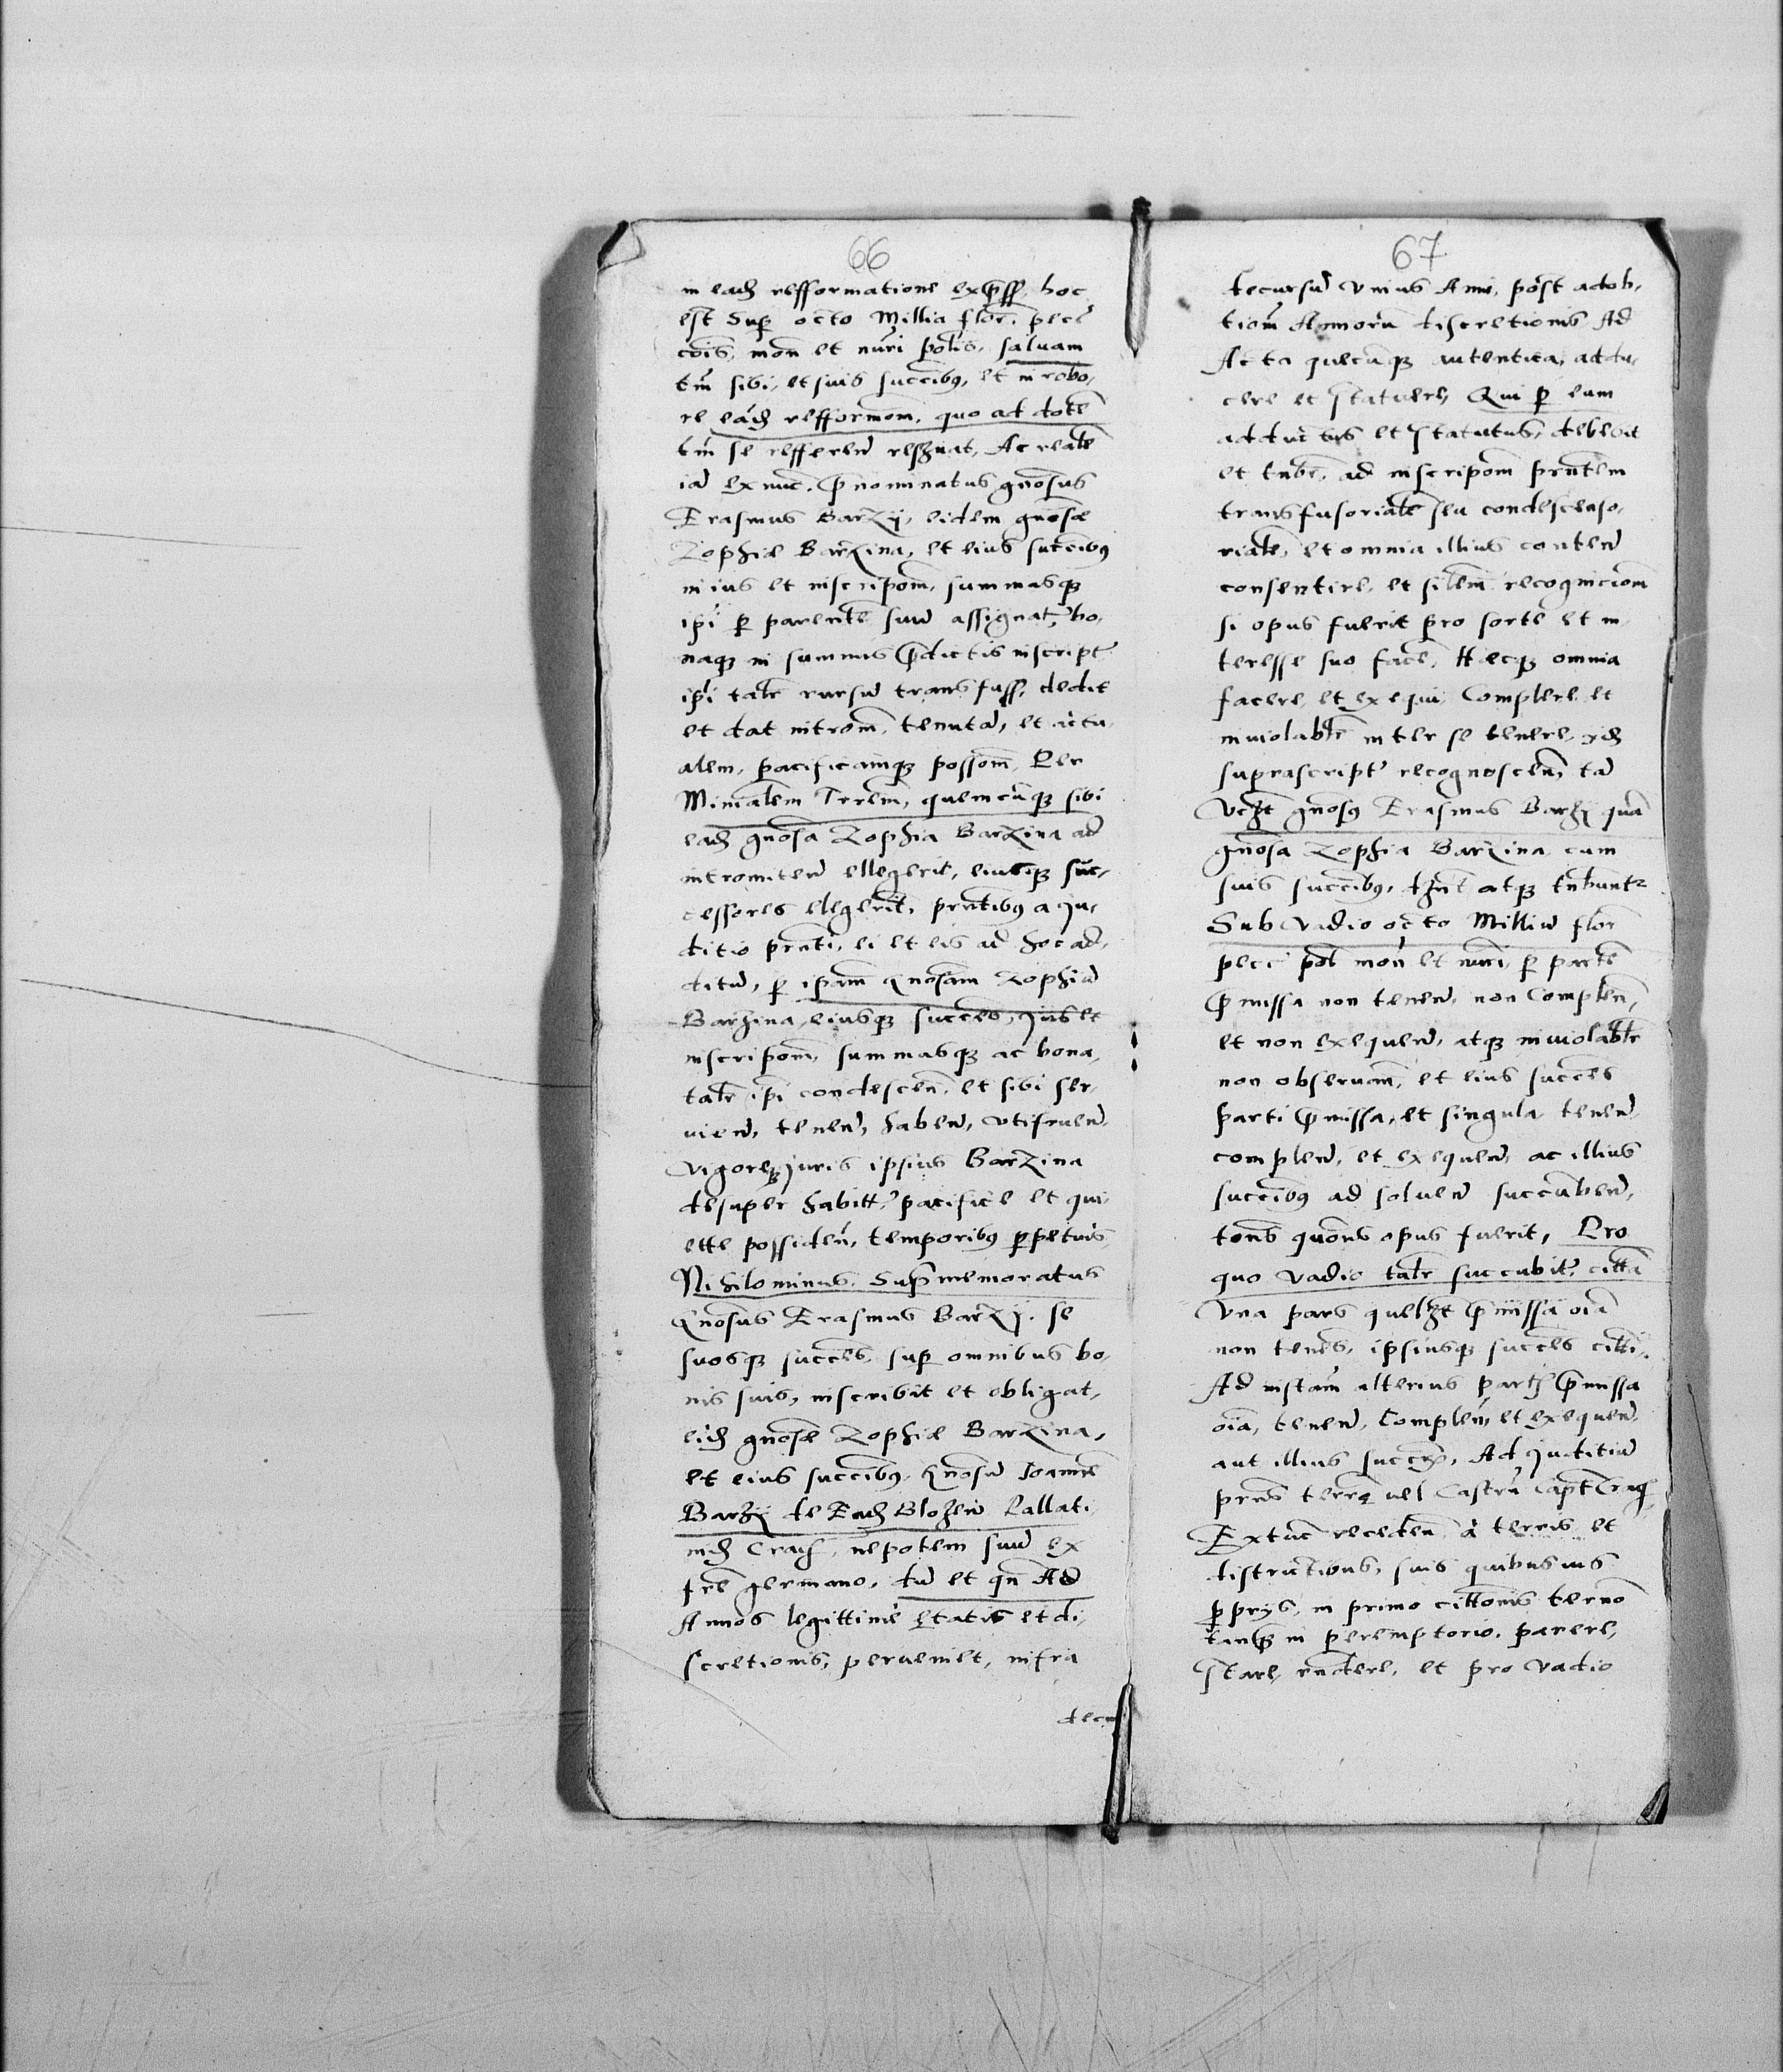 66
in eadē refformatione exp̄ss, hoc
est Sup octo Millia flor. pecć
cōis, mon et nūri polis, saluam
tm̄ sibi, et suis succibꝯ, et in robo,
re eādē refformōm, quo ad dotē
tm̄ se refferen̄ resignat, Ac reale
iā ex nuc, p̄nominatus gnōsus
Erasmus Barzij, eidem gnōsæ
Zophiæ Barzina, et eius succībꝯ
in ius et inscripōm, summasqꝫ
ipī ꝑ parentē suū assignat, bo,
naqꝫ in summis p̄dictis inscript
ipī talr̄ rursū transfuss, dedit
et dat intrōm, tenutā, et actu,
alem, pacificāmqꝫ possōm, Per
Miniālem Trrēm, quemcūqꝫ sibi
eadē gnōsa Zophia Barzina ad
intromitteñ ellegerit, eiusqꝫ suc,
cessores elegerīt, pn̄tibꝯ a ju,
ditio pn̄ti, ei et eis ad hoc ad,
ditū, ꝑ ipam gnōsam Zophiā
Barzina, eiusqꝫ succēs, jus et
inscripōm, summasqꝫ ac bona,
talr̄ ipī condesceñ, et sibi ser,
uieñ, teneñ, habeñ, vtifrueñ,
vigoreqꝫ juris ipsius Barzina
desuper habitt, pacifice et qui,
ette possideñ, temporibꝯ ꝑpetuis
Nihilominus, Sup̄memoratus
Gnōsus Erasmus Barzij, se
suosqꝫ succēs, sup omnibus bo,
nis suis, inscribit et obligat,
eidē gnōsæ Zophiæ Barzina,
et eius succībꝯ, Gnōsū Joannē
Barzij de Eadē Blozeū Pallati,
nidē Crach, nepotem suū ex
frē germano, dū et qn̄ Ad
Annos legittime ętatis et di,
scretionis, peruenīet, infra
decur
67
decursū vnius Anni, pōst adob,
tiom̄ Annorū discretionis Ad
Acta quecūqꝫ autentica, addu,
cere et statuere, Qui ꝑ eum
adductus et statutus, debebit
et tnbr̄, ad inscripōm pn̄tem
transfusoriale seu condescenso,
riale, et omnia illius conteñ
consentire, et silem recognicionm
si opus fuerit pro sortē et in,
teresse suo facē, Hæcqꝫ omnia
facere, et exequi, Complere et
inuiolabtr̄ inter se tenere, ijdē
suprascript recognosceñ, tā
vczt gnōsꝯ Erasmus Barzij quā
gnōsa Zophia Barzina cum
suis succībꝯ, tent atqꝫ tnbunt
Sub vadio octo Milliū flor
pecć pol mon et nūri, ꝑ partē
p̄missa non teneñ, non Compleñ,
et non exequeñ, atqꝫ inuiolabtr̄
non obseruañ, et eius succēs
parti p̄missa, et singula, teneñ
compleñ, et exequeñ, ac illius
succībꝯ ad solueñ succūbeñ,
tons quōns opus fuerit, Pro
quo vadio talr̄ succubit, cittā
vna pars quelzt p̄missa oīa
non tenēs, ipsiusqꝫ succēs citti,
Ad instam̄ alterius partis p̄missa
oīa, teneñ, Compleñ, et exequeñ,
aut illius succꝝ, Ad juditiū
prn̄s terrꝝ uel Castrū Capt Crac,
Extūc recedeñ à terris et
districtibus, suis quibusuis
ꝑprijs, in primo cittonis terno
tanqꝫ in peremptorio, parere,
stare, rndere, et pro vadio